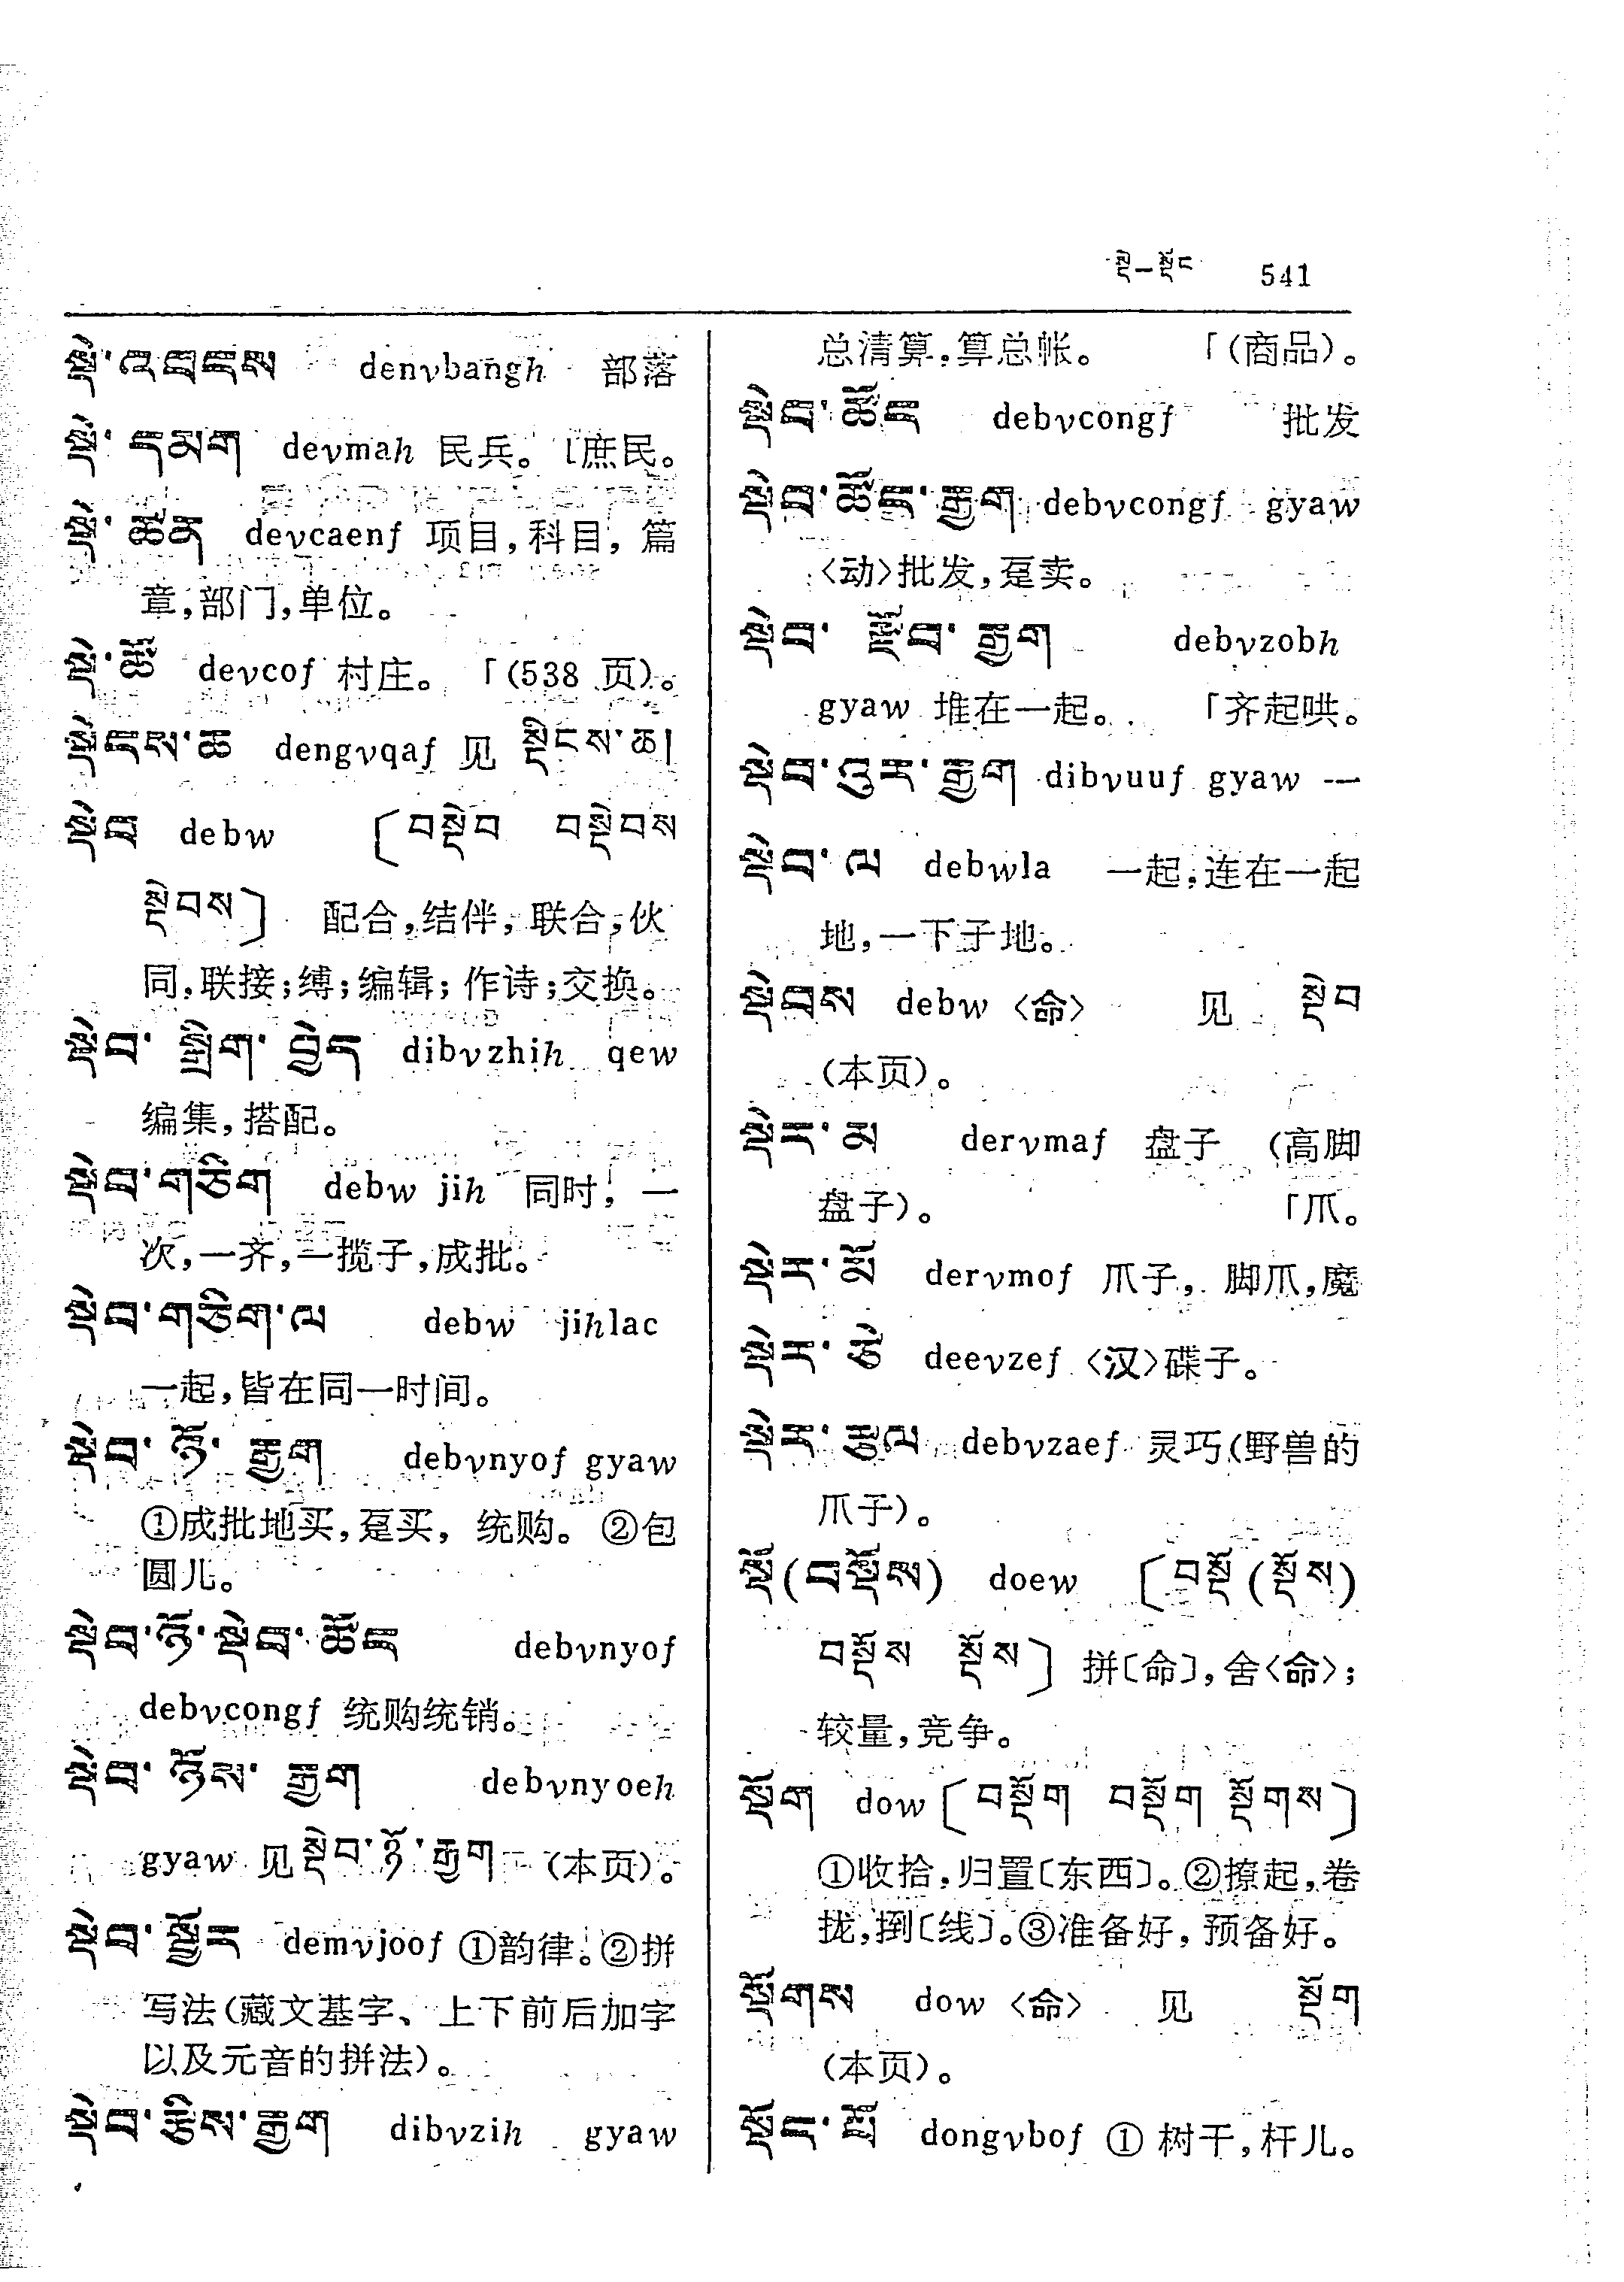 སྡེ—སྡོང 541
སྡེ་འབངས denvbangh 部落
སྡེ་དམག devmah 民兵。〔庶民。
སྡེ་ཚན devcaenf 项目,科目,篇
章,部门,单位。
སྡེ་ཚོ devcof 村庄。「(538 页)。
སྡེངས་ཆ dengvqaf 见 སྡིངས་ཆ།
སྡེབ debw 〔བསྡེབ བསྡེབས
སྡེབས〕 配合,结伴,联合,伙
同,联接;缚;编辑;作诗;交换。
སྡེབ་སྒྲིག་བྱེད dibvzhih qew
编集,搭配。
སྡེབ་གཅིག debw jih 同时,一
次,一齐,一揽子,成批。
སྡེབ་གཅིག་ལ debw jihlac
一起,皆在同一时间。
སྡེབ་ཉོ་རྒྱག debvnyof gyaw
①成批地买,趸买,统购。②包
圆儿。
སྡེབ་ཉོ་སྡེབ་ཚོང debvnyof
debvcongf 统购统销。
སྡེབ་ཉོས་རྒྱག debvnyoeh
gyaw 见 སྡེབ་ཉོ་རྒྱག (本页)。
སྡེབ་སྦྱོར demvjoof ①韵律。②拼
写法(藏文基字、上下前后加字
以及元音的拼法)。
སྡེབ་རྩིས་རྒྱག dibvzih gyaw
总清算,算总帐。「(商品)。
སྡེབ་ཚོང debvcongf 批发
སྡེབ་ཚོང་རྒྱག debvcongf gyaw
〈动〉批发,趸卖。
སྡེབ་སྫོབ་རྒྱག debvzobh
gyaw 堆在一起。「齐起哄。
སྡེབ་འུར་རྒྱག dibvuuf gyaw 一
སྡེབ་ལ debwla 一起,连在一起
地,一下子地。
སྡེབས debw 〈命〉 见 སྡེབ
(本页)。
སྡེར་མ dervmaf 盘子 (高脚
盘子)。「爪。
སྡེར་མོ dervmof 爪子,脚爪,魔
སྡེར་ཙེ deevzef 〈汉〉碟子。
སྡེར་རྩལ debvzaef 灵巧(野兽的
爪子)。
སྡོ(བསྡོས) doew 〔བསྡོ(སྡོས)
བསྡོས སྡོས〕拼〔命〕,舍〈命〉;
较量,竞争。
སྡོག dow〔བསྡོག བསྡོག སྡོགས〕
①收拾,归置〔东西〕。②撩起,卷
拢,捯〔线〕。③准备好,预备好。
སྡོགས dow 〈命〉 见 སྡོག
(本页)。
སྡོང་པོ dongvbof ① 树干,杆儿。